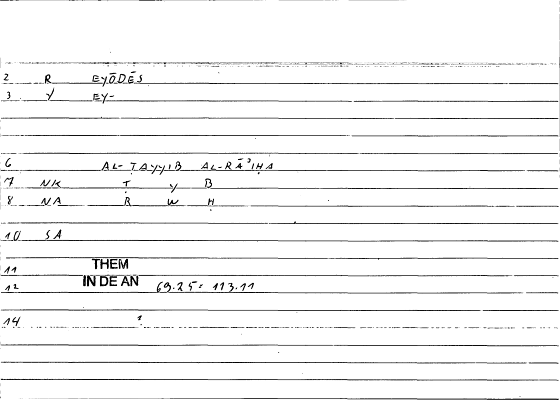 2 R EYŌDĒS
3 Y EY-
6 AL-ṬAYYIB AL-RĀʾIḤA
7 NK Ṭ Y B
8 NA R W Ḥ
10 SA
11 THEM
12 IN DE AN 69.25: 113.11
14